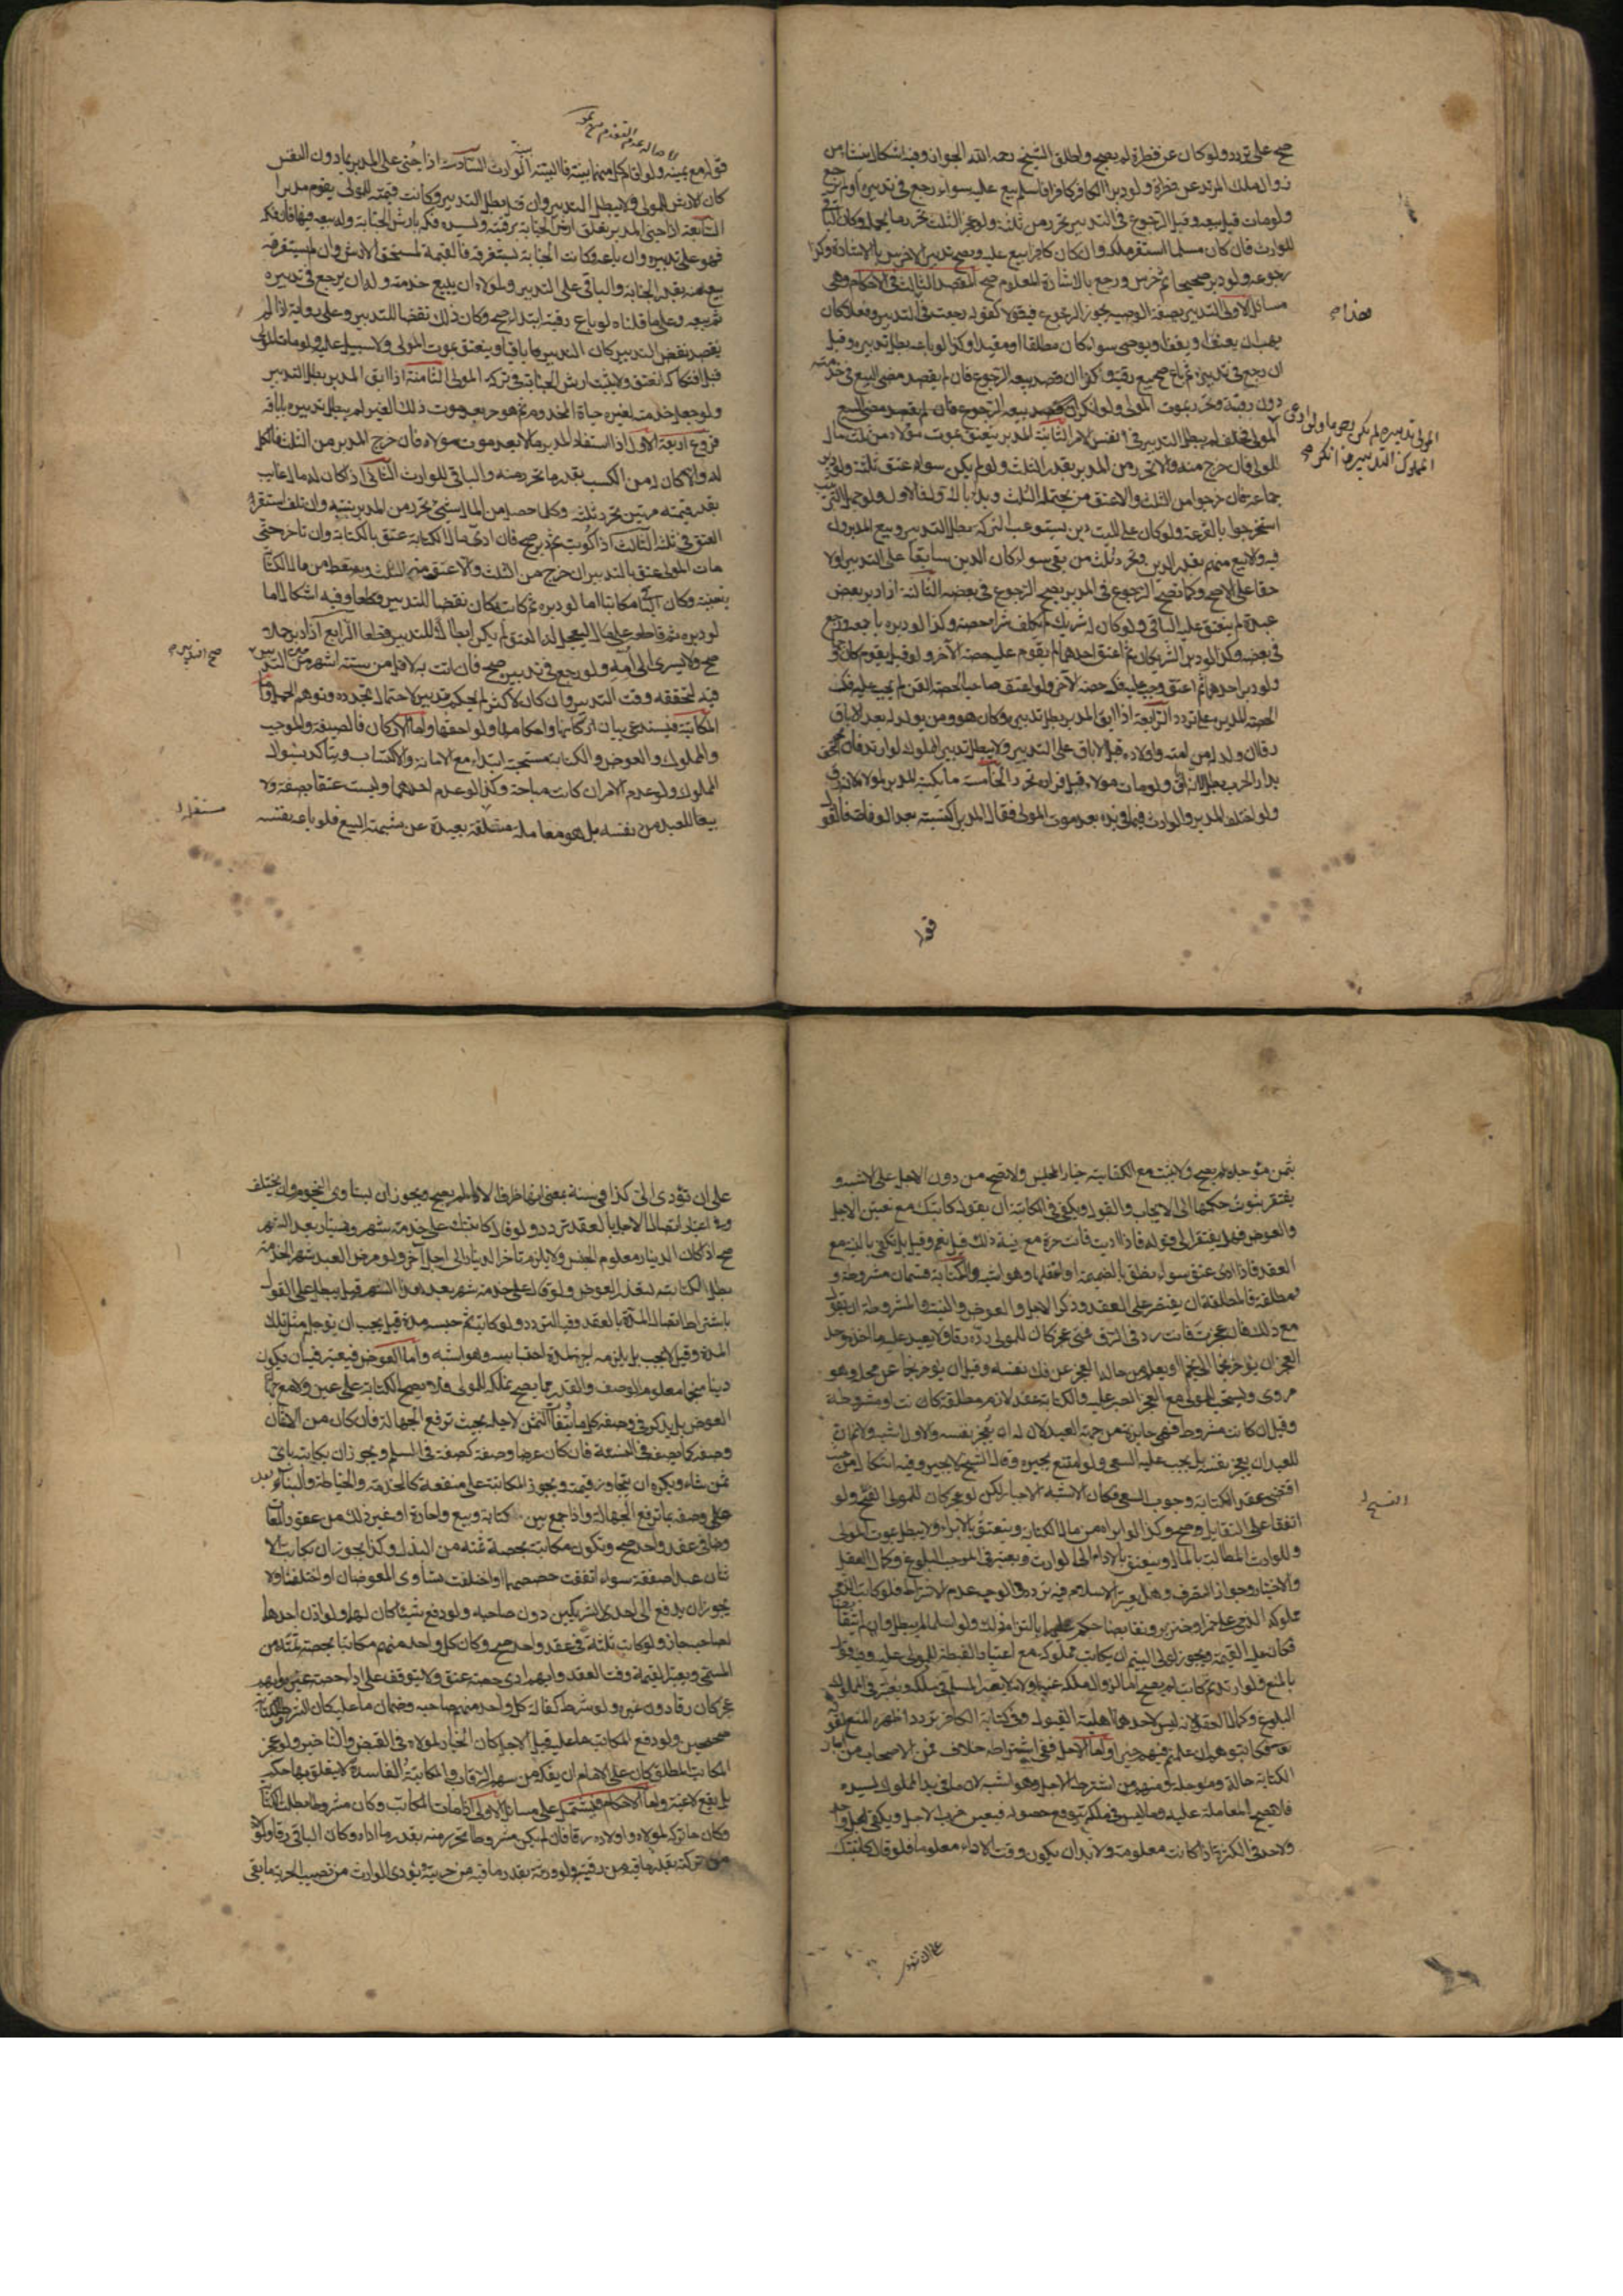 صح على تردد ولو كان عن فطرة لم يصح واطلق الشيخ رحمه الله الجواز وفيه اشكال ينشأ من
زوال ملك المرتد عن فطرة ولو دبر الكافر كافرا فاسلم بيع عليه سواء رجع في تدبيره او لم يرجع
ولو مات قبل بيعه وقبل الرجوع في التدبير تحرر من ثلثه ولو عجز الثلث تحرر ما يحمله وكان الباقي
للوارث فان كان مسلما استقر ملكه وان كان كافرا بيع عليه ويصح تدبير الاخرس بالاشارة وكذا
رجوعه ولو دبر صحيحا ثم خرس ورجع بالاشارة المعلومة صح المقصد الثالث في الاحكام وهي
مسائل الاولى التدبير بصفة الوصية يجوز الرجوع فيه قولا كقوله رجعت في التدبير وفعلا كان
يهب او يعتق او يقف او يوصى سواء كان مطلقا او مقيدا وكذا لو باعه بطل تدبيره وقيل
ان رجع في تدبيره ثم باع صح بيع رقبته وكذا ان قصد ببيعه الرجوع فان لم يقصد مضى البيع في خدمته
دون رقبته وتحرر بموت المولى ولو انكر
المولى فحلف لم يبطل التدبير في نفس الامر الثانية المدبر ينعتق بموت مولاه من ثلث مال
المولى فان خرج منه والا تحرر من المدبر بقدر الثلث ولو لم يكن سواه عتق ثلثه ولو دبر
جماعة فان خرجوا من الثلث والا عتق من يحتمله الثلث وبدئ بالاول فالاول ولو جهل الترتيب
استخرجوا بالقرعة ولو كان على الميت دين يستوعب التركة بطل التدبير وبيع المدبرون
فيه والا بيع منهم بقدر الدين وتحرر ثلث من بقى سواء كان الدين سابقا على التدبير او لا
حقا على الاصح وكما يصح الرجوع في المدبر يصح الرجوع في بعضه الثالثة اذا دبر بعض
عبده لم ينعتق عليه الباقي ولو كان له شريك لم يكلف شراء حصته وكذا لو دبره باجمعه ورجع
في بعضه وكذا لو دبر الشريكان ثم اعتق احدهما لم يقوم عليه حصة الآخر ولو قيل يقوم كان وجها
ولو دبر احدهما ثم اعتق وجب عليه فك حصة الآخر ولو اعتق صاحب الحصة القن لم يجب عليه فك
الحصة المدبرة على تردد الرابعة اذا ابق المدبر بطل تدبيره وكان هو ومن يولد له بعد الاباق
رقا ان ولد له من امة واولاده قبل الاباق على التدبير ولا يبطل تدبير المملوك لو ارتد فان لحق
بدار الحرب بطل لانه اباق ولو مات مولاه قبل فراره تحرر الخامسة ما يكتسبه المدبر لمولاه لانه رق
ولو اختلف المدبر والوارث فيما في يده بعد موت المولى فقال المدبر اكتسبته بعد الوفاة فالقول
هذا م
المولى تدبيره لم يكن رجوعا ولو ادعى
المملوك التدبير وانكر م
قوله
لاصالة عدم التقدم
قوله مع يمينه ولو اقام كل منهما بينة فالبينة بينة الوارث السادسة اذا جنى على المدبر بما دون النفس
كان الارش للمولى ولا يبطل التدبير وان قتل بطل التدبير وكانت قيمته للمولى يقوم مدبرا
السابعة اذا جنى المدبر تعلق ارش الجناية برقبته ولسيده فكه بارش الجناية وله بيعه فيها فان فكه
فهو على تدبيره وان باعه وكانت الجناية تستغرقه فالقيمة لمستحق الارش وان لم تستغرقه
بيع منه بقدر الجناية والباقي على التدبير ولمولاه ان يبيع خدمته وله ان يرجع في تدبيره
ثم يبيعه وعلى ما قلناه لو باع رقبته ابتداء صح وكان ذلك نقضا للتدبير وعلى رواية اذا لم
يقصد نقض التدبير كان التدبير باقيا وينعتق بموت المولى ولا سبيل عليه ولو مات المولى
قبل افتكاكه انعتق ولا يثبت ارش الجناية في تركة المولى الثامنة اذا ابق المدبر بطل التدبير
ولو جعل خدمته لغيره حياة المخدوم ثم هو حر بعد موت ذلك الغير لم يبطل تدبيره باباقه
فروع اربعة الاول اذا استفاد المدبر مالا بعد موت مولاه فان خرج المدبر من الثلث فالكل
له والا كان له من الكسب بقدر ما تحرر منه والباقي للوارث الثاني اذا كان له مال غايب
بقدر قيمته مرتين تحرر ثلثه وكلما حصل من المال شئ تحرر من المدبر بنسبته وان تلف استقر
العتق في ثلثه الثالث اذا كوتب ثم دبر صح فان ادى مال الكتابة عتق بالكتابة وان تاخر حتى
مات المولى عتق بالتدبير ان خرج من الثلث والا عتق منه الثلث وسقط من مال الكتابة
بنسبته وكان الباقي مكاتبا اما لو دبره ثم كاتبه كان نقضا للتدبير قطعا وفيه اشكال اما
لو دبره ثم قاطعه على مال ليعجل له العتق لم يكن ابطالا للتدبير قطعا الرابع اذا دبر حملا
صح ولا يسري الى امه ولو رجع في تدبيره صح فان اتت به لاقل من ستة اشهر من حين التدبير
فيه لتحققه وقت التدبير وان كان لاكثر لم يحكم بتدبيره لاحتمال تجدده وتوهم الحمل واما
المكاتبة فيستدعى بيان اركانها واحكامها ولواحقها واما الاركان فالصيغة والموجب
والمملوك والعوض والكتابة مستحبة ابتداء مع الامانة والاكتساب ويتاكد بسؤال
المملوك ولو عدم الامران كانت مباحة وكذا لو عدم احدهما وليست عتقا بصفة ولا
بيعا للعبد من نفسه بل هو معاملة مستقلة بعيدة عن شبهة البيع فلو باعه نفسه
صح التدبير م
مستقلة
بثمن مؤجل لم يصح ولا يثبت مع الكتابة خيار المجلس ولا تصح من دون الاجل على الاشبه و
يفتقر ثبوت حكمها الى الايجاب والقبول ويكفي في الكتابة ان يقول كاتبتك مع تعيين الاجل
والعوض وهل يفتقر الى قوله فاذا اديت فانت حر مع نية ذلك قيل نعم وقيل بل تكفي النية مع
العقد فاذا ادى عتق سواء نطق بالضميمة او اغفلها وهو اشبه والكتابة قسمان مشروطة و
مطلقة فالمطلقة ان يقتصر على العقد وذكر الاجل والعوض والنية والمشروطة ان يقول
مع ذلك فان عجزت فانت رد في الرق فمتى عجز كان للمولى رده رقا ولا يعيد عليه ما اخذ وحد
العجز ان يؤخر نجما الى نجم او يعلم من حاله العجز عن فك نفسه وقيل ان يؤخر نجما عن محله وهو
مروى ويستحب للمولى مع العجز الصبر عليه والكتابة عقد لازم مطلقة كانت او مشروطة
وقيل ان كانت مشروطة فهي جايزة من جهة العبد لان له ان يعجز نفسه والاول اشبه ولا نسلم ان
للعبد ان يعجز نفسه بل يجب عليه السعي ولو امتنع يجبر وقال الشيخ لا يجبر وفيه اشكال من حيث
اقتضى عقد الكتابة وجوب السعي فكان الاشبه الاجبار لكن لو عجز كان للمولى الفسخ ولو
اتفقا على التقايل صح وكذا لو ابراه من مال الكتابة وينعتق بالابراء ولا يبطل بموت المولى
وللوارث المطالبة بالمال وينعتق بالاداء الى الوارث ويعتبر في الموجب البلوغ وكمال العقل
والاختيار وجواز التصرف وهل يعتبر الاسلام فيه تردد والوجه عدم الاشتراط فلو كاتب الذمي
مملوكه الذمي على خمر او خنزير وتقابضا حكم عليهما بالتزام ذلك ولو اسلما لم يبطل وان لم يتقابضا
فكان عليه القيمة ويجوز لولى اليتيم ان يكاتب مملوكه مع اعتبار الغبطة للمولى عليه وفيه قول
بالمنع ولو ارتد ثم كاتب لم يصح اما لزوال ملكه عنه او لانه لا يقر المسلم في ملكه ويعتبر في المملوك
البلوغ وكمال العقل لانه ليس لاحدهما اهلية القبول وفي كتابة الكافر تردد اظهره المنع لقوله
تعالى فكاتبوهم ان علمتم فيهم خيرا واما الاجل ففي اشتراطه خلاف فمن الاصحاب من اجاز
الكتابة حالة ومؤجلة ومنهم من اشترط الاجل وهو اشبه لان ما في يد المملوك لسيده
فلا تصح المعاملة عليه وما ليس في ملكه يتوقع حصوله فيعين ضرب الاجل ويكفي اجل واحد
ولا حد في الكثرة اذا كانت معلومة ولا بد ان يكون وقت الاداء معلوما فلو قال كاتبتك
الفسخ
على ان تؤدى
على ان تؤدى الى كذا في سنة بمعنى انها ظرف الاداء لم يصح ويجوز ان يتساوى النجوم وان يختلف
وفي اعتبار اتصال الاجل بالعقد تردد ولو قال كاتبتك على خدمة شهر ودينار بعد الشهر
صح اذا كان الدينار معلوم الجنس ولا يلزم تاخر الدينار الى اجل آخر ولو مرض العبد شهر الخدمة
بطلت الكتابة لتعذر العوض ولو قال على خدمة شهر بعد هذا الشهر قيل يبطل على القول
باشتراط اتصال المدة بالعقد وفيه تردد ولو كاتبه ثم حبسه مدة قيل يجب ان يؤجل مثل تلك
المدة وقيل لا يجب بل يلزمه اجرته لمدة احتباسه وهو اشبه واما العوض فيعتبر فيه ان يكون
دينا منجما معلوم الوصف والقدر مما يصح تملكه للمولى فلا تصح الكتابة على عين ولا مع جهالة
العوض بل يذكر في وصفه كل ما يتفاوت الثمن لاجله بحيث ترتفع الجهالة فان كان من الاثمان
وصفه كما يصفه في النسيئة وان كان عرضا وصفه كصفته في السلم ويجوز ان يكاتبه باي
ثمن شاء ويكره ان يتجاوز قيمته ويجوز المكاتبة على منفعة كالخدمة والخياطة والبناء بعد
وصفه بما ترتفع الجهالة واذا جمع بين كتابة وبيع واجارة او غير ذلك من عقود المعاوضات
في عقد واحد صح ويكون مكاتبته بحصة ثمنه من البذل وكذا يجوز ان يكاتب الا
ثنان عبدا صفقة سواء اتفقت حصصهما او اختلفت تساوى العوضان او اختلفا ولا
يجوز ان يدفع الى احد الشريكين دون صاحبه ولو دفع شيئا كان لهما ولو اذن احدهما
لصاحبه جاز ولو كاتب ثلثة في عقد واحد صح وكان كل واحد منهم مكاتبا بحصة ثمنه من
المسمى ويعتبر القيمة وقت العقد وايهم ادى حصته عتق ولا يتوقف على اداء حصة غيره وايهم
عجز كان رقا دون غيره ولو شرط كفالة كل واحد منهم صاحبه وضمان ما عليه كان الشرط والكتابة
صحيحين ولو دفع المكاتب ما عليه قبل الاجل كان الخيار لمولاه في القبض والتاخير ولو عجز
المكاتب المطلق كان على الامام ان يفكه من سهم الرقاب والمكاتبة الفاسدة لا يتعلق بها حكم
بل يقع لاغية واما الاحكام فيشتمل على مسائل الاولى اذا مات المكاتب وكان مشروطا بطلت الكتابة
وكان ما تركه لمولاه واولاده رقا وان لم يكن مشروطا تحرر منه بقدر ما اداه وكان الباقي رقا ولمولاه
من تركته بقدر ما فيه من رقية ولورثته بقدر ما فيه من حرية ويؤدى الوارث من نصيب الحرية ما بقى